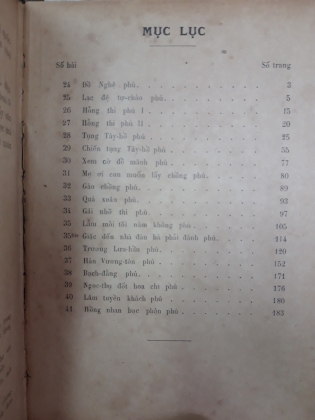 MỤC LỤC
Số bài Số trang
24 Bô Nghê phú 3
25 Lạc đệ tự-trào phú 5
26 Hồng thi phú I 15
27 Hồng thi phú II 20
28 Tụng Tây-hồ phú 25
29 Chiến tụng Tây-hồ phú 55
30 Xem cờ đồ mành phú 77
31 Mẹ ơi con muốn lấy chồng phú 80
32 Gáo chồng phú 89
33 Quá xuân phú 93
34 Gái nhỡ thì phú 97
35 Lấm mồi tôi năm không phú 105
35bis Giác đến nhà đàn bà phải đánh phú 114
36 Trương Lưu-hầu phú 120
37 Hàn Vương-tôn phú 152
38 Bạch-đằng phú 171
39 Ngọc-thụ đổi hoa chi phú 176
40 Lâm tuyền khách phú 180
41 Hồng nhan bạc phận phú 183